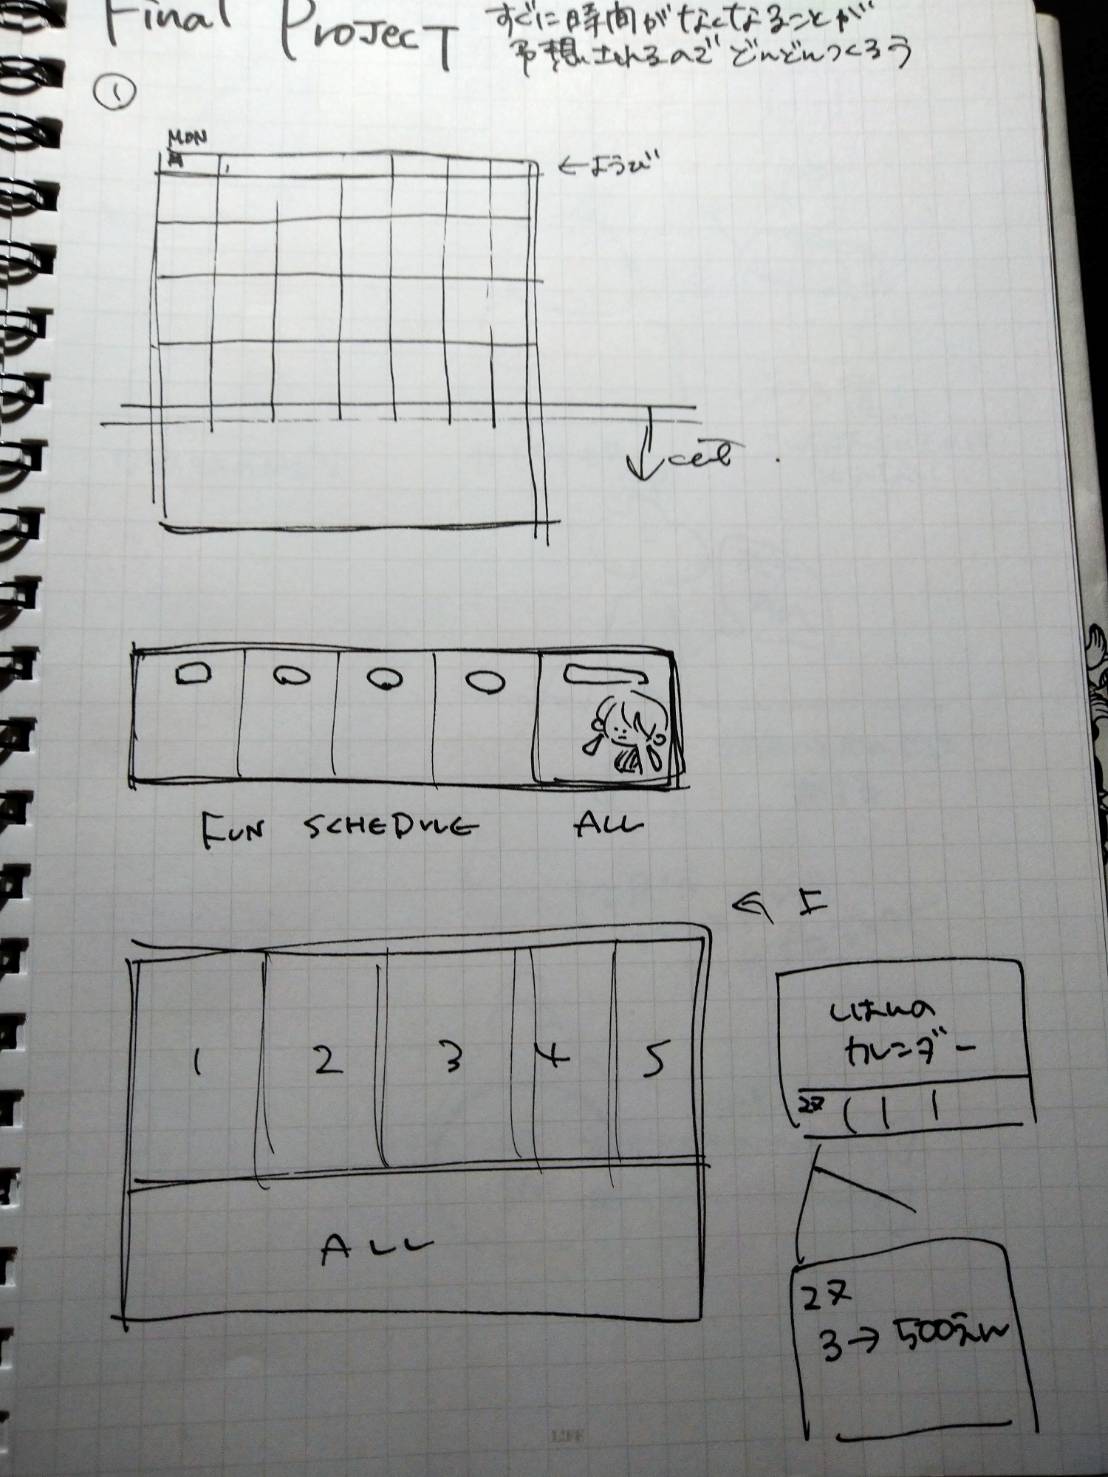 Final Project
すぐに時間がなくなることが
予想されるのでどんどんつくろう
①
MON
←ようび
FUN SCHEDULE
ALL
1 2 3 4 5
ALL
カレンダー
27
27
3→500えん
LIFE